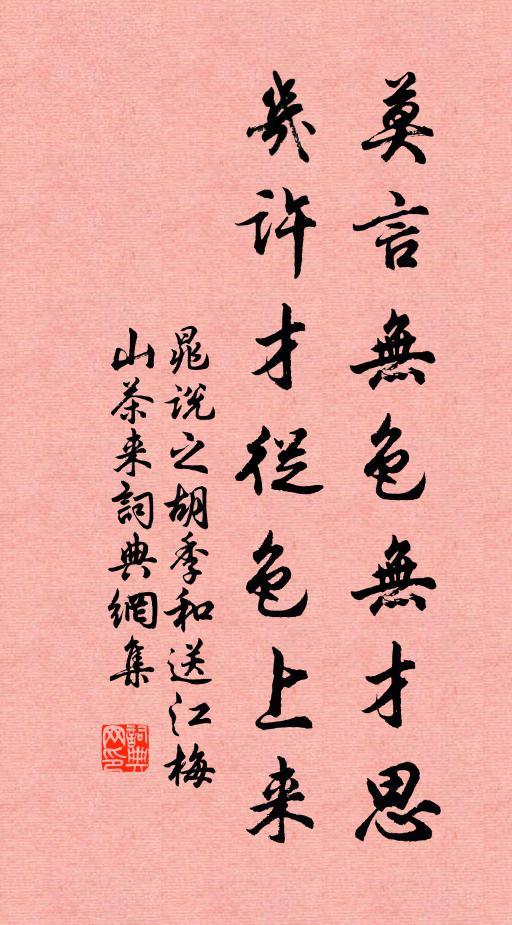 莫言無色無才思
幾許才從色上来
晁說之胡季和送江梅
山茶来詞典網集
詞典网印